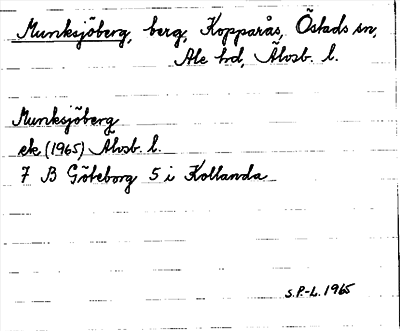 Munksjöberg, berg, Kopparås, Östads sn,
Ale hd, Älvsb. l.
Munksjöberg
ek (1965) Älvsb. l.
7 B Göteborg 5 i Kollanda
S.P.-L. 1965